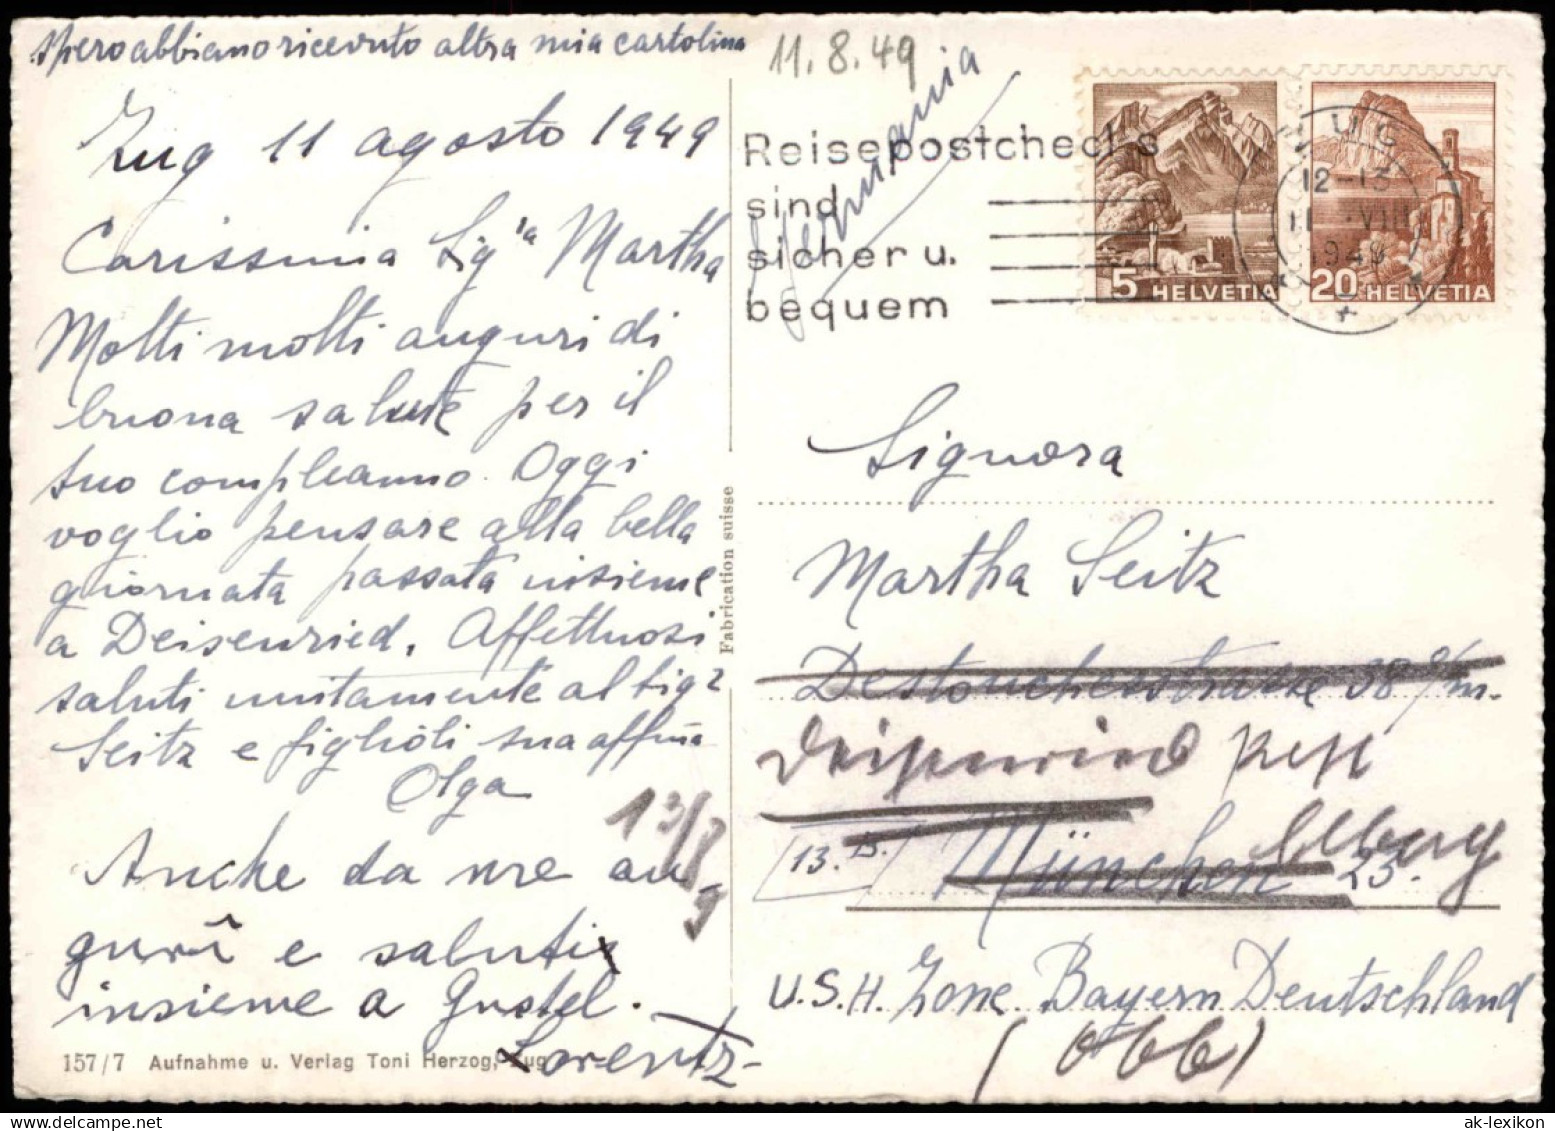 spero abbiano ricevuto altra mia cartolina
Zug 11 agosto 1949
Carissima Sigª Martha
Molti molti auguri di
buona salute per il
suo compleanno. Oggi
voglio pensare alla bella
giornata passata insieme
a Deisenried. Affettuosi
saluti unitamente al Sigr
Seitz e figlioli sua affma
Olga
Anche da me au-
guri e saluti
insieme a Gustel.
Lorentz-
13/8
9
157/7 Aufnahme u. Verlag Toni Herzog, Zug
Fabrication suisse
11.8.49
Germania
Reisepostchecks
sind
sicher u.
bequem
ZUG
12-13
11 VIII
1949
5 HELVETIA
20 HELVETIA
Signora
Martha Seitz
Destoucherstrasse 38 
Deisenried Post
13. B. München 23.
U.S.A. Zone Bayern Deutschland
(Obb)
ak-lexikon